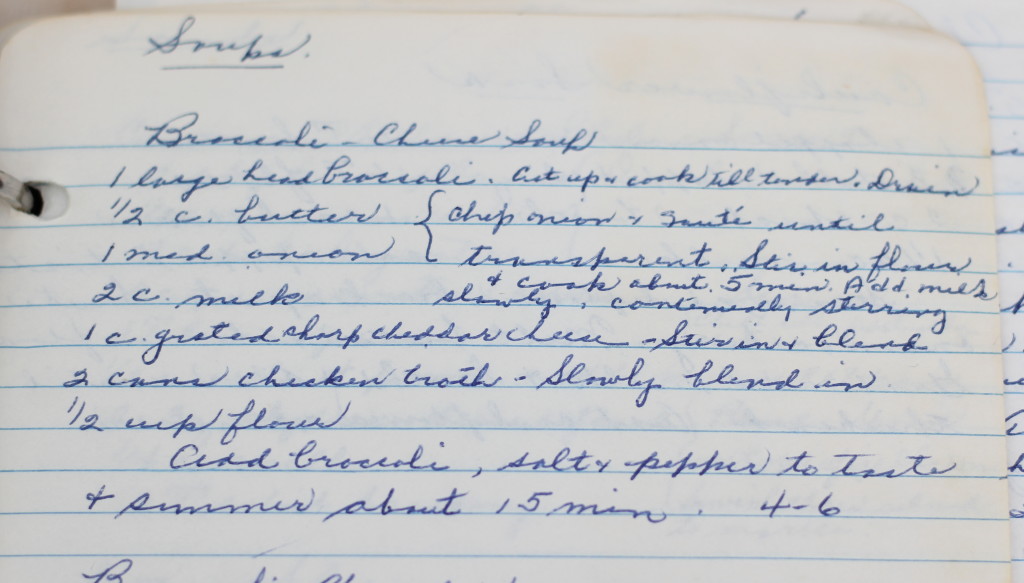 Soups.
Broccoli-Cheese Soup
1 large head broccoli. Cut up & cook till tender. Drain
1/2 c. butter { chop onion & sauté until
1 med. onion { transparent. Stir in flour
& cook about 5 min. Add milk
2 c. milk slowly, continually stirring
1 c. grated sharp cheddar cheese - Stir in & blend
2 cans chicken broth - Slowly blend in.
1/2 cup flour
Add broccoli, salt & pepper to taste
& simmer about 15 min. 4-6